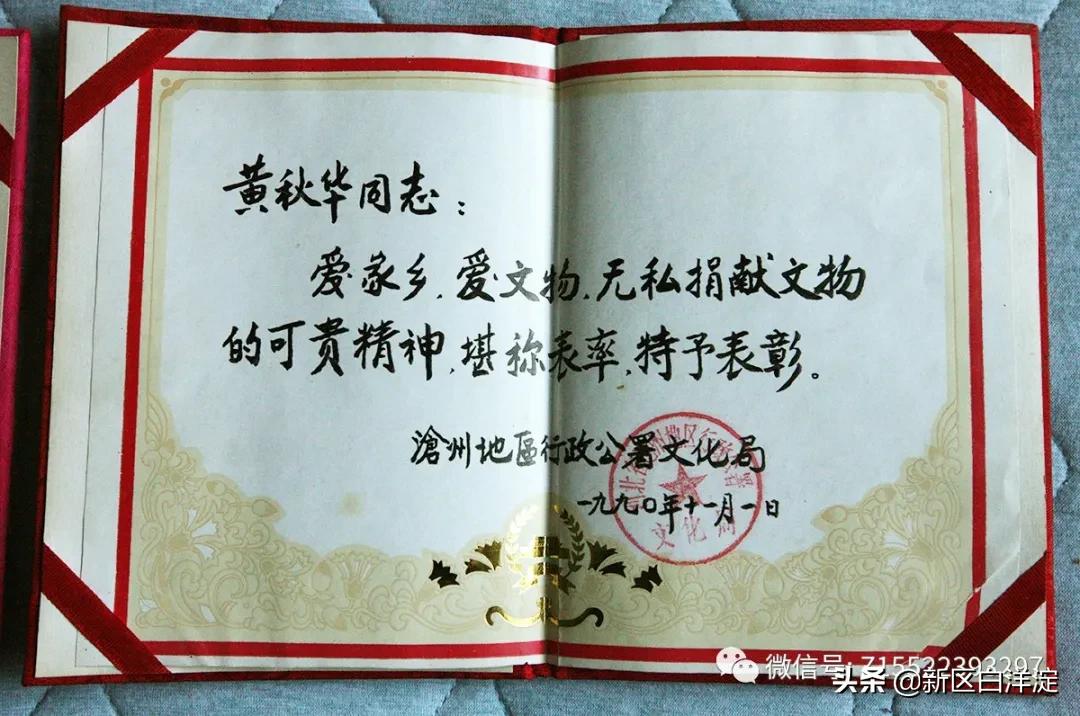 黄秋华同志：
爱家乡，爱文物，无私捐献文物
的可贵精神，堪称表率，特予表彰。
滄州地區行政公署文化局
一九九〇年十一月一日
文化局
微信号: 715522393297
头条 @新区白洋淀